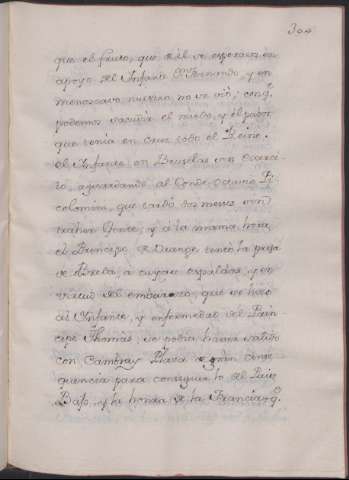 304
que el fruto, que del se esperava en
apoyo del Infante Dn. Fernando, y en
menoscavo nuestro no se vió; conq.
podemos sacudir el miedo, y el pavor
que tenia en Cruz todo el Reino.
el Infante en Bruselas
aguardando al Conde Octavio Pi
colomini, que tardó dos meses en
traher Gente, y á la misma hora
el Principe de Orange tentó la presa
de Breda, a cuyas espaldas, y en
virtud del embarazo, que se hizo
al Infante, y enfermedad del Prin
cipe Thomas, se podia haver valido
con Cambray Plaza de gran conse
quencia para conseguir lo del Pais
Bajo, y la honra de la Francia; q.